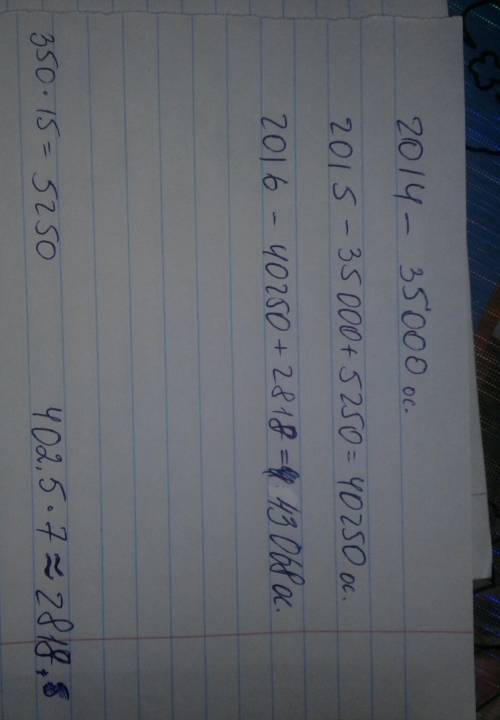 2014 - 35000 ос.
2015 - 35000 + 5250 = 40250 ос.
2016 - 40250 + 2818 = 43068 ос.
350 · 15 = 5250
402,5 · 7 ≈ 2818,